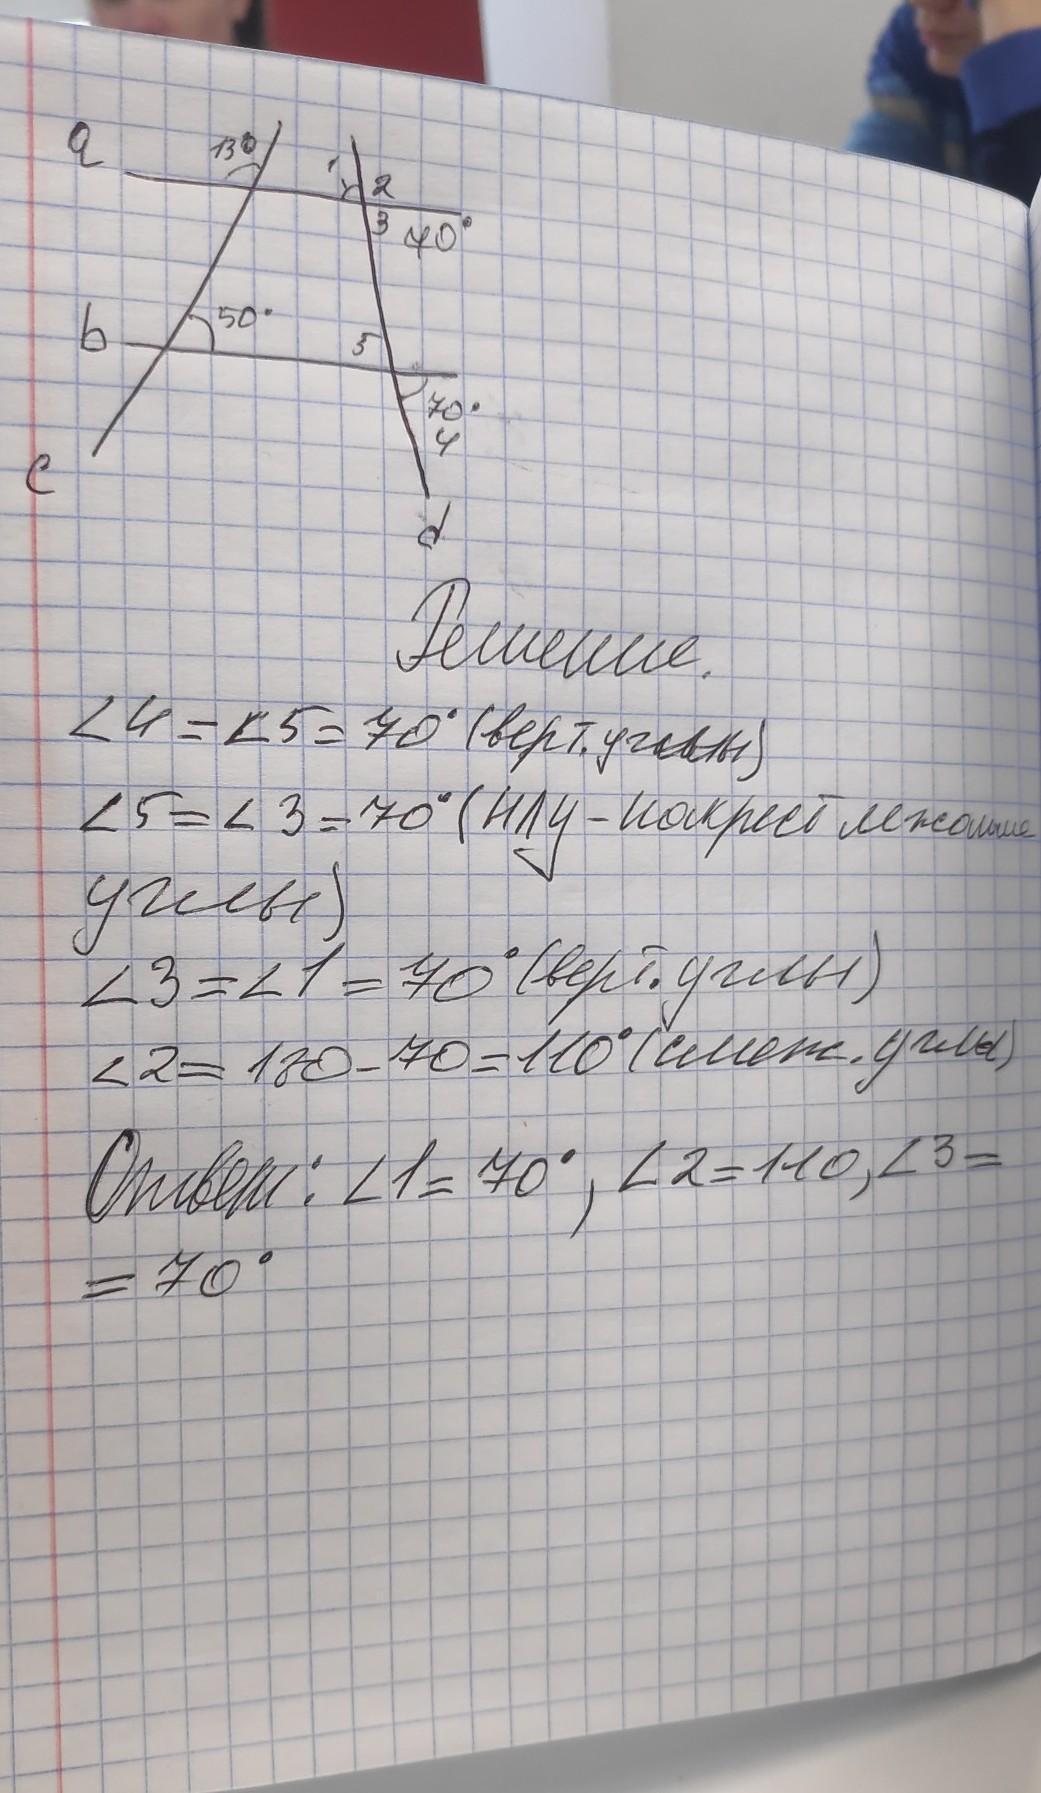 a
130
1
2
3
70°
b
50°
5
70°
4
c
d
Решение.
∠4=∠5=70° (верт. углы)
∠5=∠3=70° (НЛУ - накрест лежащие
углы)
∠3=∠1=70° (верт. углы)
∠2=180-70=110° (смеж. углы)
Ответ: ∠1=70°, ∠2=110, ∠3=
=70°